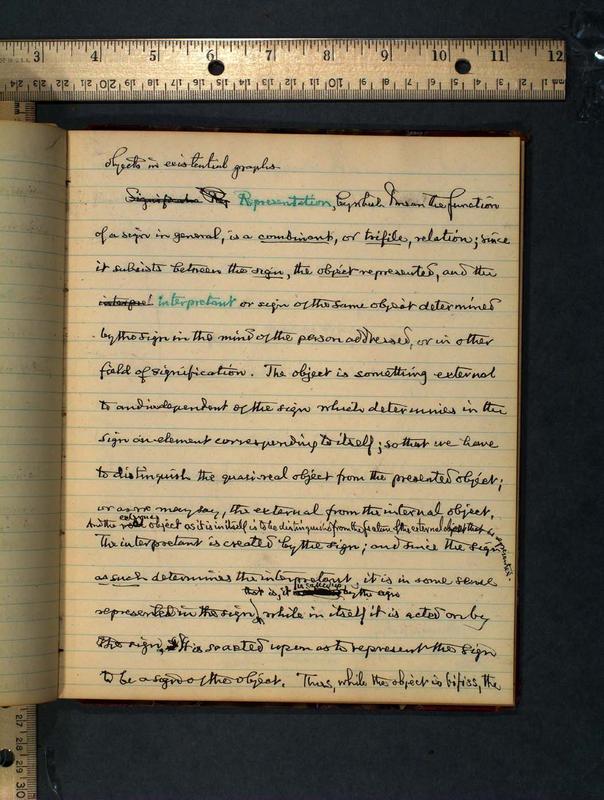 3 4 5 6 7 8 9 10 11 12
objects in existential graphs
Representation, by which I mean the function
of a sign in general, is a combinant, or trifile, relation; since
it subsists between the sign, the object represented, and the
interpretant or sign of the same object determined
by the sign in the mind of the person addressed, or in other
field of signification. The object is something external
to and independent of the sign which determines in the
sign an element corresponding to itself; so that we have
to distinguish the quasi-real object from the presented object;
or as we may say, the external from the internal object.
And the external object as it is in itself is to be distinguished from the feature of the external object that is represented.
The interpretant is created by the sign; and since the sign
as such determines the interpretant, it is in some sense
that is, it is by the sign
represented in the sign, while in itself it is acted on by
the sign, It is so acted upon as to represent the sign
to be a sign of the object. Thus, while the object is bifiss, the